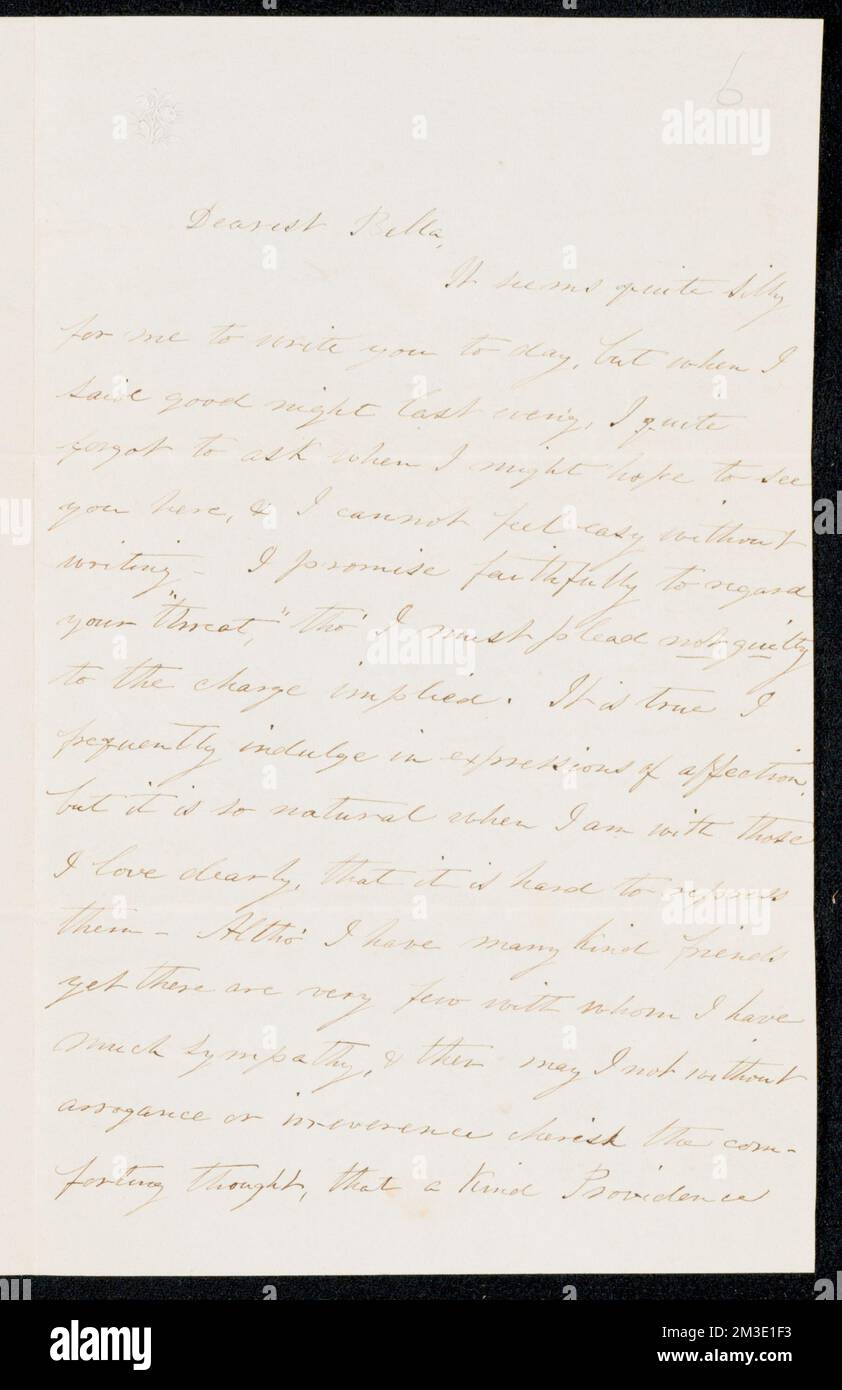 6
Dearest Bella,
It seems quite silly
for me to write you to day, but when I
said good night last eve'g, I quite
forgot to ask when I might hope to see
you here, & I cannot feel easy without
writing - I promise faithfully to regard
your "threat," tho' I must plead not guilty
to the charge implied. It is true I
frequently indulge in expressions of affection,
but it is so natural when I am with those
I love dearly, that it is hard to repress
them - Altho' I have many kind friends
yet there are very few with whom I have
much sympathy, & then may I not without
arrogance or irreverence cherish the com-
forting thought, that a kind Providence
alamy
Image ID: 2M3E1F3
www.alamy.com